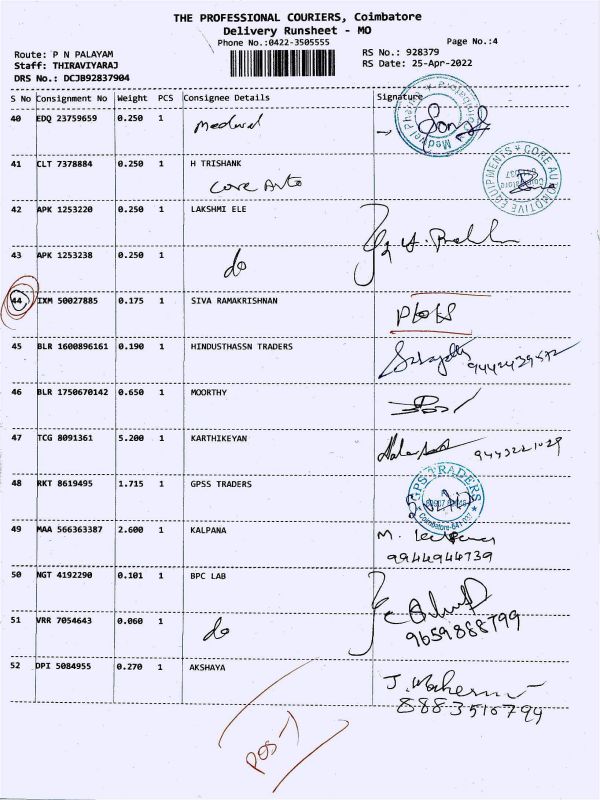 THE PROFESSIONAL COURIERS, Coimbatore
Delivery Runsheet - MO
Phone No.:0422-3505555 Page No.:4
Route: P N PALAYAM RS No.: 928379
Staff: THIRAVIYARAJ RS Date: 25-Apr-2022
DRS No.: DCJB92837904
S No Consignment No Weight PCS Consignee Details Signature
40 EDQ 23759659 0.250 1
41 CLT 7378884 0.250 1 H TRISHANK
Core Auto
CORE AUTOMOTIVE EQUIPMENTS
42 APK 1253220 0.250 1 LAKSHMI ELE
43 APK 1253238 0.250 1 do
44 IXM 50027885 0.175 1 SIVA RAMAKRISHNAN
45 BLR 1600896161 0.190 1 HINDUSTHASSN TRADERS
46 BLR 1750670142 0.650 1 MOORTHY
47 TCG 8091361 5.200 1 KARTHIKEYAN
48 RKT 8619495 1.715 1 GPSS TRADERS
GPS TRADERS
49 MAA 566363387 2.600 1 KALPANA
9944944739
50 NGT 4192290 0.101 1 BPC LAB
51 VRR 7054643 0.060 1 do
9659888799
52 DPI 5084955 0.270 1 AKSHAYA
8883510794